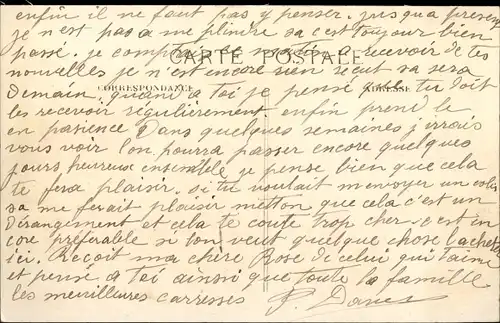 enfin il ne faut pas y penser. jusqua present
je n'est pas a me plindre sa c'est toujour bien
passé. je comptai ce matin a recevoir de tes
CARTE POSTALE
nouvelles je n'est encore rien recut sa sera
Demain, quand a toi je pensé que tu doit
CORRESPONDANCE ADRESSE
les recevoir régulièrement enfin prend le
en pasience Dans quelques semaines j'irrais
vous voir l'on pourra passer encore quelques
jours heureux ensemble je pense bien que cela
te fera plaisir. si tu voulait m'envoyer un colis
sa me ferait plaisir metton que cela c'est un
Dérangement et cela te coute trop cher c'est en
core préférable si ton veut quelque chose l'acheter
ici. Reçoit ma chère Rose de celui qui t'aime
et pense a toi ainsi que toute la famille
les meuilleures carresses